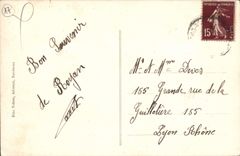 Bon Souvenir
de Royan
15
Mr et Mme Diver
165 Grande rue de la
Guillotière 165
Lyon Rhône